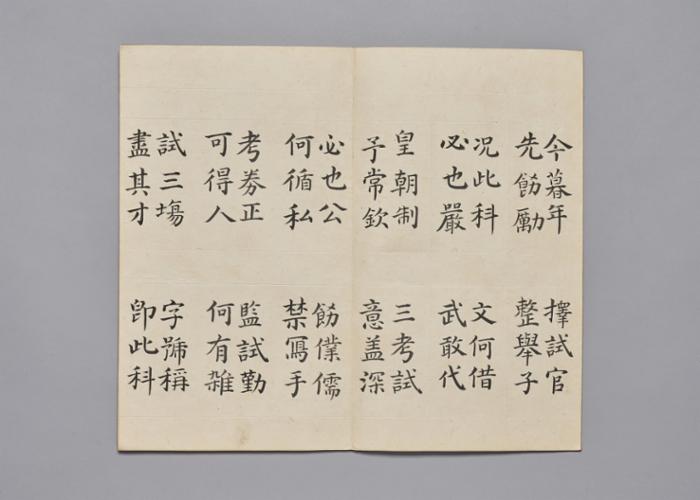 今暮年
先飭勵
擇試官
整舉子
況此科
必也嚴
文何借
武敢代
皇朝制
予常欽
三考試
意盖深
必也公
何循私
飭僕儒
禁冩手
考券正
可得人
監試勤
何有雜
試三塲
盡其才
字號稱
卽此科